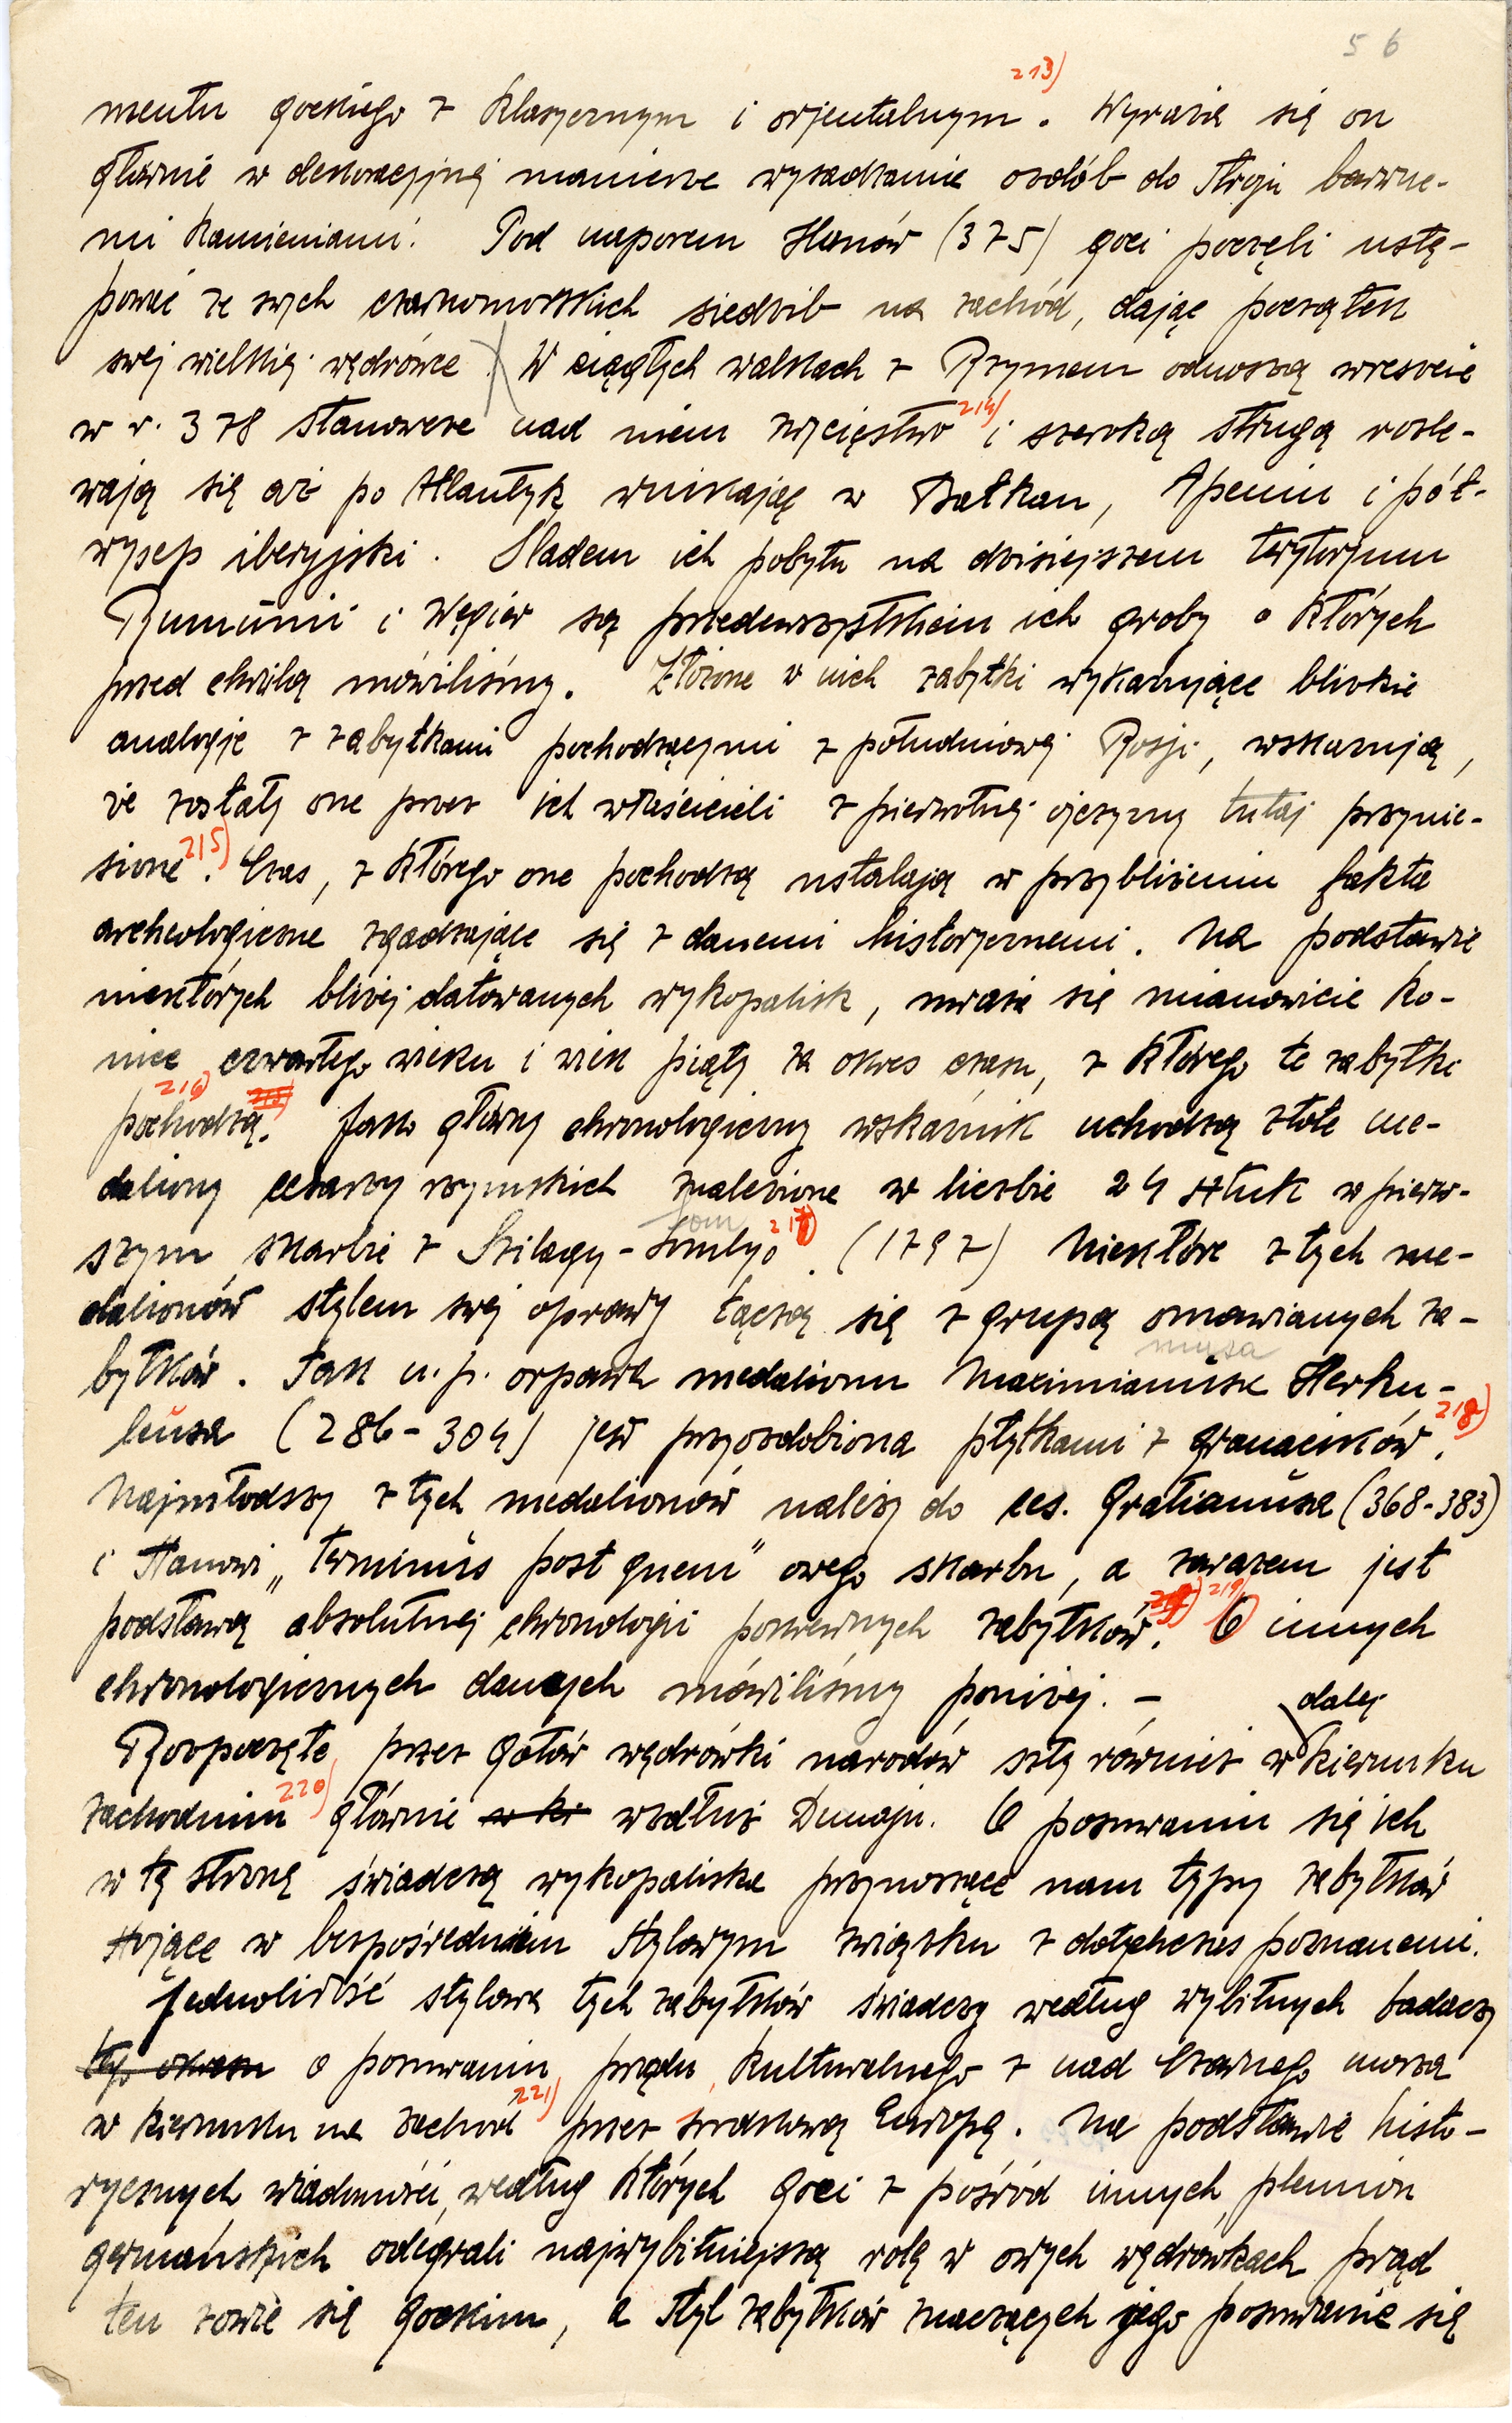 56
mentu gockiego z klasycznym i orjentalnym 213). Wyraża się on
głównie w dekoracyjnej manierze wysadzania ozdób do stroju barwne-
mi kamieniami. Pod naporem Hunów (375) goci poczęli ustę-
pować ze swych czarnomorskich siedzib na zachód, dając początek
swej wielkiej wędrówce. W ciągłych walkach z Rzymem odnoszą wreszcie
w r. 378 stanowcze nad niem zwycięstwo 214) i szeroką strugą rozle-
wają się aż po Atlantyk wnikając w Bałkan, Apenin i pół-
wysep iberyjski. Śladem ich pobytu na dzisiejszem terytorjum
Rumunii i Węgier są przedewszystkiem ich groby o których
przed chwilą mówiliśmy. Złożone w nich zabytki wykazujące bliskie
analogje z zabytkami pochodzącymi z południowej Rosji, wskazują,
że zostały one przez ich właścicieli z pierwotnej ojczyzny tutaj przynie-
sione 215). Czas, z którego one pochodzą ustalają w przybliżeniu fakta
archeologiczne zgadzające się z danemi historycznemi. Na podstawie
niektórych bliżej datowanych wykopalisk, uważa się mianowicie ko-
niec czwartego wieku i wiek piąty za okres czasu, z którego te zabytki
pochodzą 216) 215). Jako główny chronologiczny wskaźnik uchodzą złote me-
daliony cesarzy rzymskich znalezione w liczbie 24 sztuk w pierw-
szym skarbie z Szilagy-Somlyo 217). (1797) Niektóre z tych me-
dalionów stylem swej oprawy łączą się z grupą omawianych za-
bytków. Tak n.p. orpawa medalionu Maximianusa Herku-
leusa (286-304) jest przyozdobiona płytkami z granacików. 218)
Najmłodszy z tych medalionów należy do ces. Gratianusa (368-383)
i stanowi „terminus post quem" owego skarbu, a zarazem jest
podstawą absolutnej chronologii pokrewnych zabytków. 219) O innych
chronologicznych danych mówiliśmy poniżej. –
dalej
Rozpoczęte przez Gotów wędrówki narodów szły również w kierunku
zachodnim 220) głównie w ki wzdłuż Dunaju. O posuwaniu się ich
w tę stronę świadczą wykopaliska przynoszące nam typy zabytków
stojące w bezpośredniem stylowym związku z dotychczas poznanemi.
Jednolitość stylowa tych zabytków świadczy według wybitnych badaczy
tego okresu o posuwaniu prądu kulturalnego z nad Czarnego morza
w kierunku na zachod 221) przez środkową Europę. Na podstawie histo-
rycznych wiadomości, według których Goci z pośród innych plemion
germańskich odegrali najwybitniejszą rolę w owych wędrówkach prąd
ten zowie się gockim, a styl zabytków znaczących jego posuwanie się